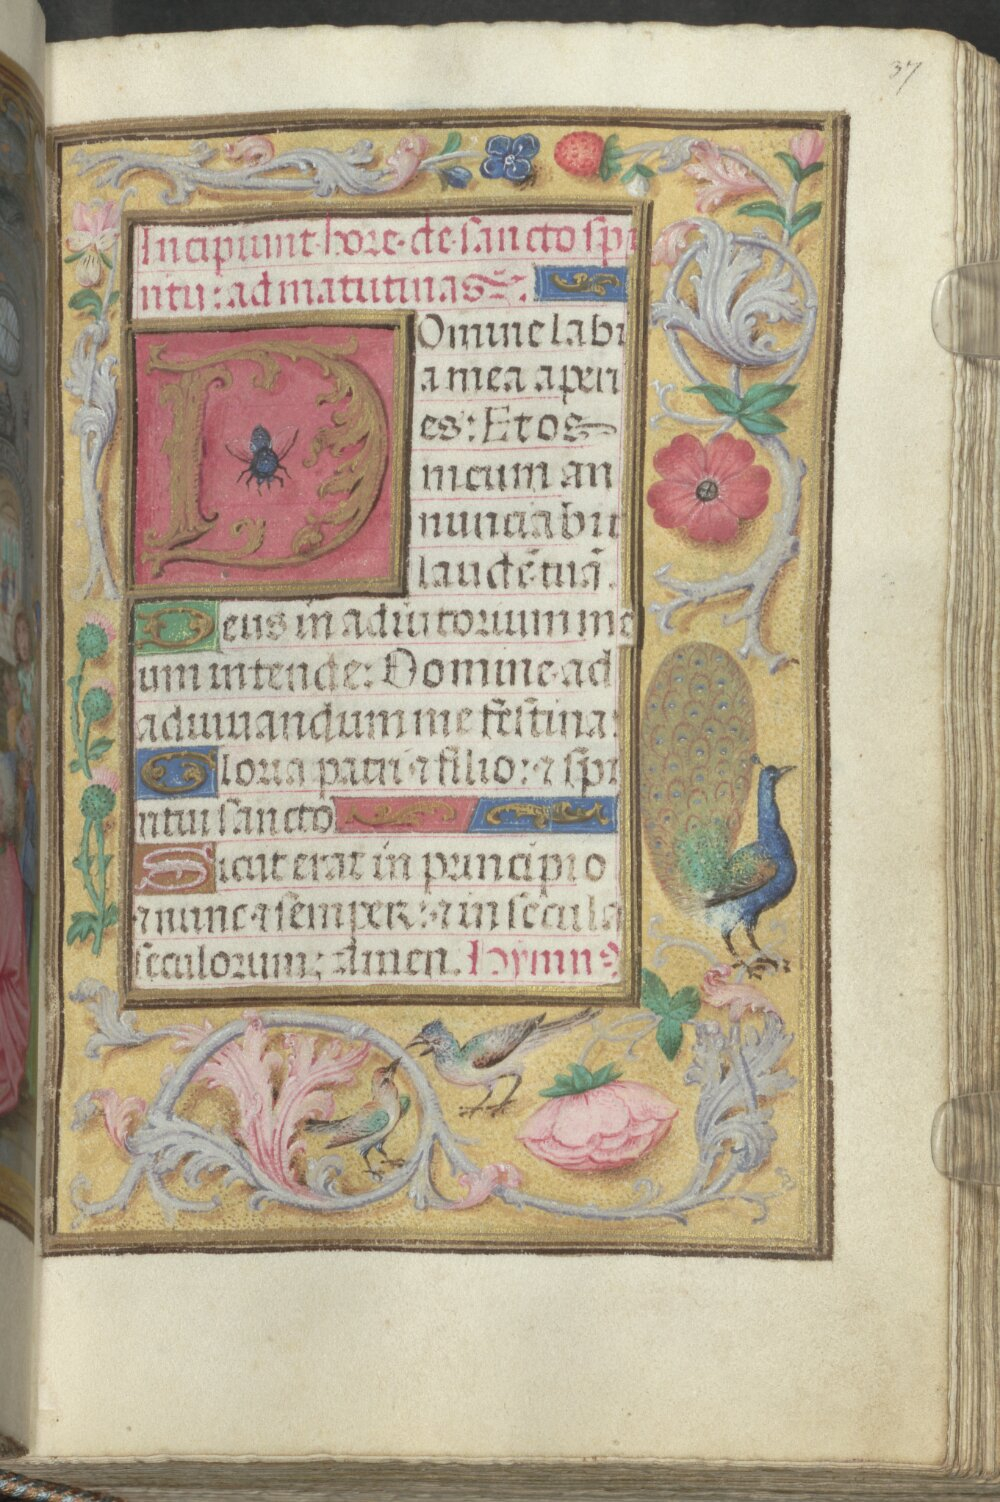 37
Incipiunt·hore·de·sancto spi
ritu: ad matutinas.
Domine labi
a mea aperi
es: Et os
meum an
nunciabit
laudē tuā.
Deus in adiutorium me
um intende: Domine ad
adiuuandum me festina:
Gloria patri ⁊ filio: ⁊ spi
ritui sancto
Sicut erat in principio
⁊ nunc ⁊ semper: ⁊ in secula
seculorum; amen. Hymnꝰ